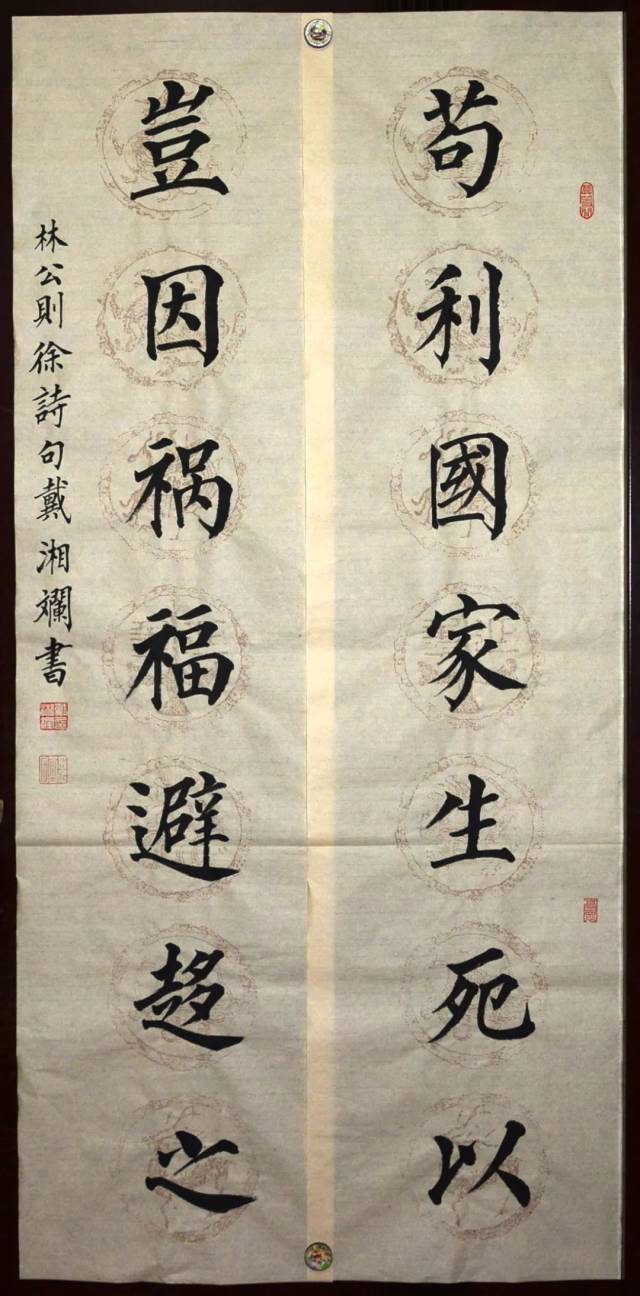 苟利國家生死以
豈因祸福避趍之
林公則徐詩句戴湘斓書